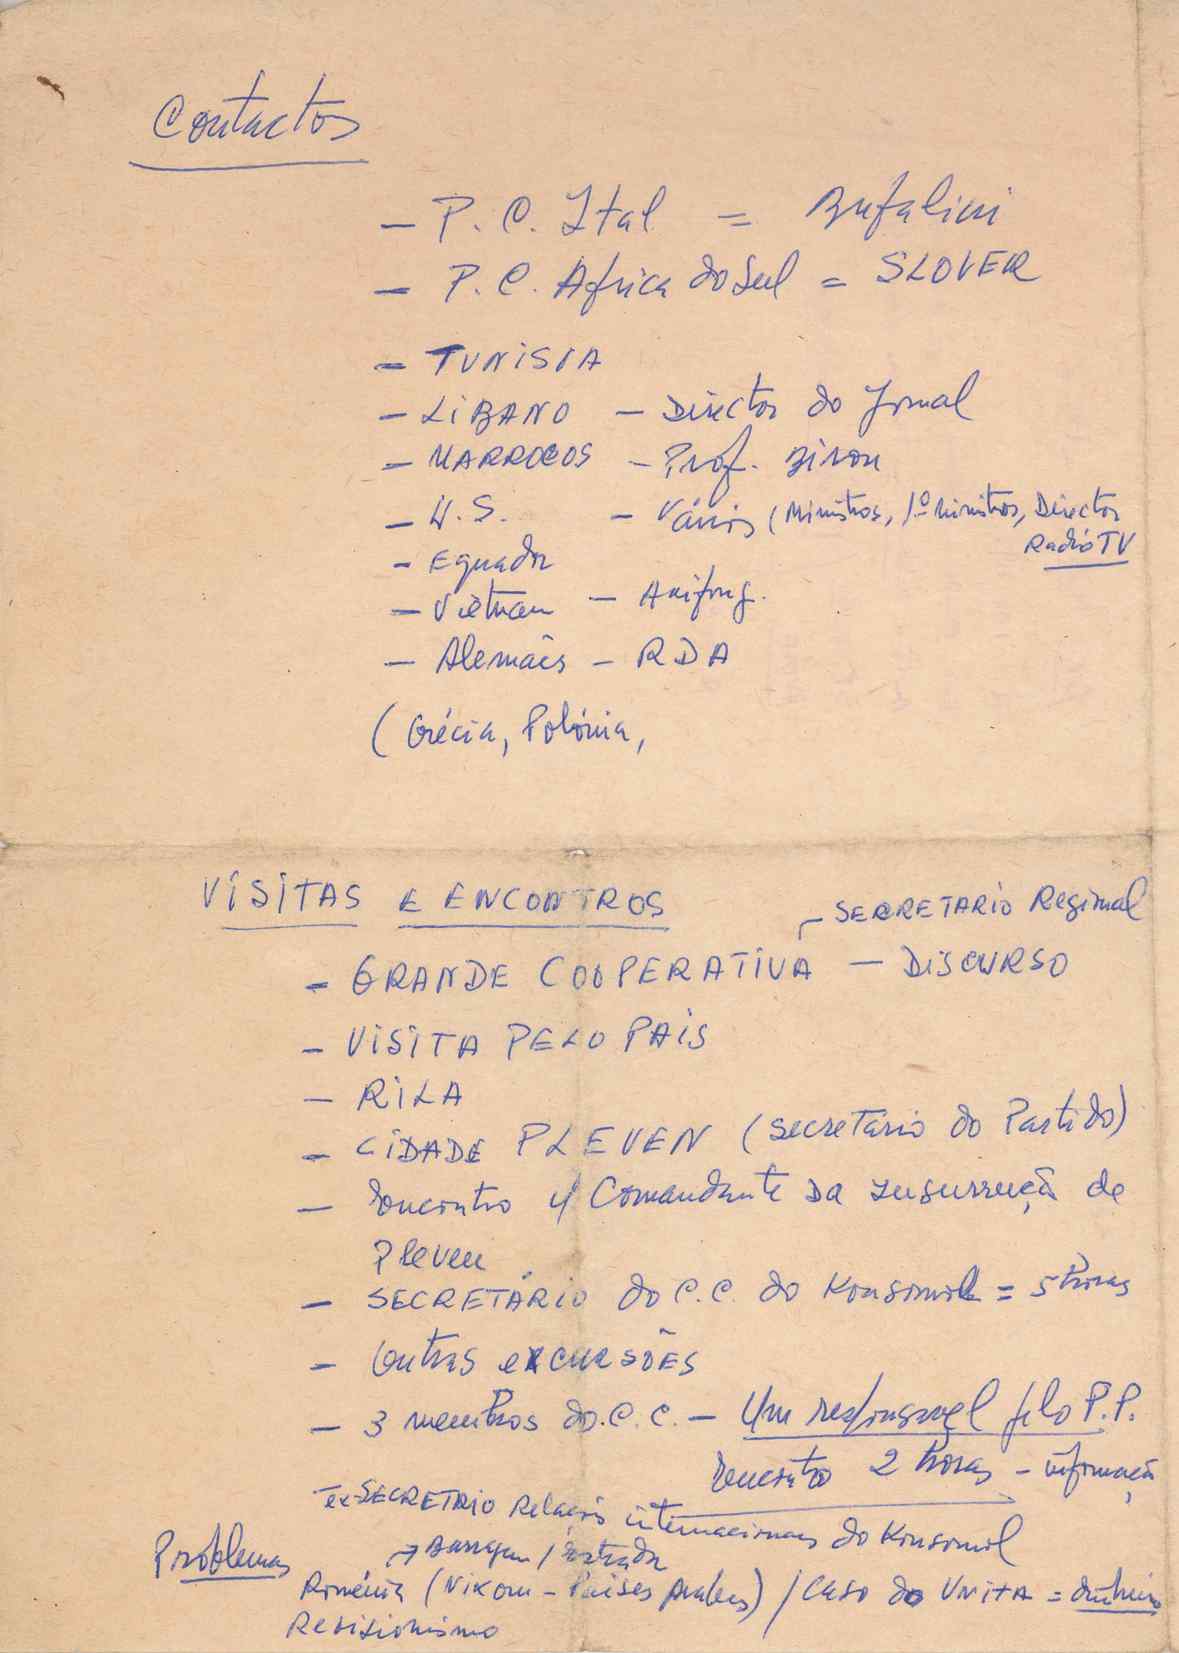 Contactos
- P.C. Ital = Bufalini
- P.C. Africa do Sul = SLOVER
- TUNISIA
- LIBANO - Director do Jornal
- MARROCOS - Prof.
- U.S. - Vários (Ministros, 1º Ministros, Director
Radio TV
- Equador
- Vietnam -
- Alemães - RDA
(Grécia, Polónia,
VISITAS E ENCONTROS
- SECRETARIO Regional
- GRANDE COOPERATIVA - DISCURSO
- VISITA PELO PAIS
- RILA
- CIDADE PLEVEN (secretário do Partido)
- Encontro c/ Comandante DA Insurreição de
Pleven
- SECRETÁRIO do C.C. do Konsomol = 5 horas
- Outras excursões
- 3 membros do C.C. - Um responsavel pelo P.P.
Encontro 2 horas - informação
- ex-SECRETRIO Relações internacionais do Konsomol
Problemas
→ Barragem / Estrada
Roménia (Nixon - Paises Arabes) / Caso da UNITA = dinheiro
Revisionismo